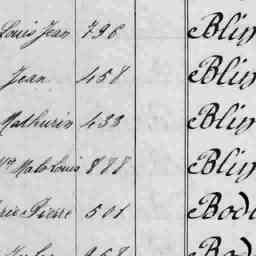 Louis Jean 796 Blin
Jean 458 Blin
Mathurin 433 Blin
Malo Louis 888 Blin
Pierre 501 Bod
968 Bod